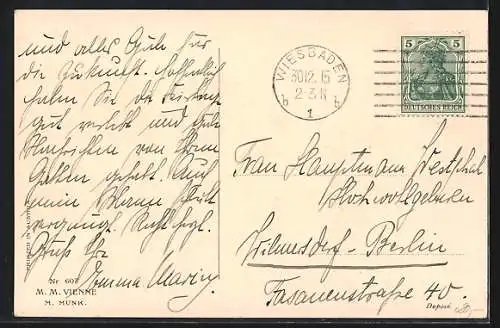 und alles Gute für
die Zukunft. Hoffentlich
haben Sie die Festtage
gut verlebt und gute
Nachrichten von Ihrem
Gatten gehabt. Auch
mein Mann
vergnügt. Recht frohl.
Gruß Ihre
Emma
Nr. 607
M. M. VIENNE
M. MUNK.
WIESBADEN
30.12.15
2-3 N
b b
1
5 5
DEUTSCHES REICH
Frau Hauptmann Westphal
Hochwohlgeboren
Wilmersdorf-Berlin
Fasanenstraße 40.
Deposé